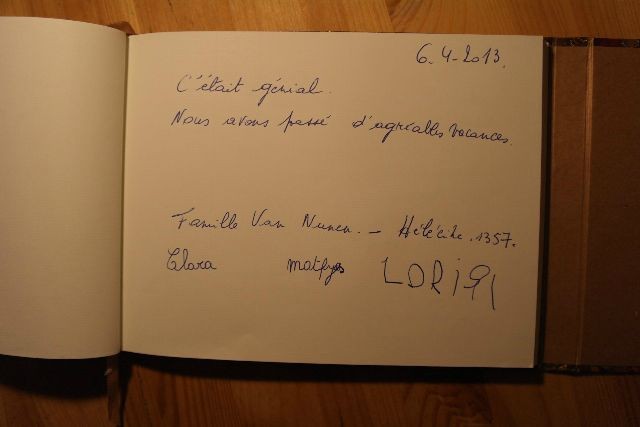 6.4-2013.
C'était génial.
Nous avons passé d'agréables vacances.
Famille Van Nunen. - Hélécine. 1357.
Clara